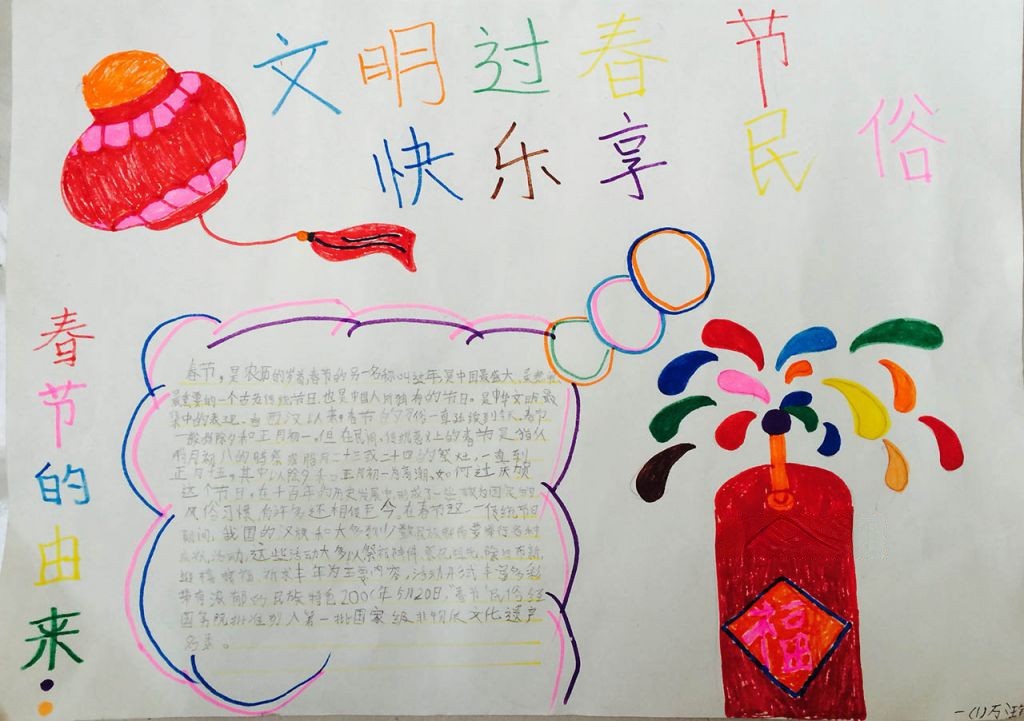 文明过春节
快乐享民俗
春节的由来:
春节,是农历的岁首,春节的另一名称叫过年,是中国最盛大、最热闹、
最重要的一个古老传统节日,也是中国人所独有的节日。是中华文明最
集中的表现。自西汉以来,春节的习俗一直延续到今天。春节
一般指除夕和正月初一。但在民间,传统意义上的春节是指从
腊月初八的腊祭或腊月二十三或二十四的祭灶,一直到
正月十五,其中以除夕和正月初一为高潮。如何过庆贺
这个节日,在千百年的历史发展中,形成了一些较为固定的
风俗习惯,有许多还相传至今。在春节这一传统节日
期间,我国的汉族和大多数少数民族都要举行各种
庆祝活动,这些活动大多以祭祀神佛、祭奠祖先、除旧布新、
迎禧接福、祈求丰年为主要内容。活动形式丰富多彩,
带有浓郁的民族特色。2006年5月20日,“春节”民俗经
国务院批准列入第一批国家级非物质文化遗产
名录。
福
一(1)万